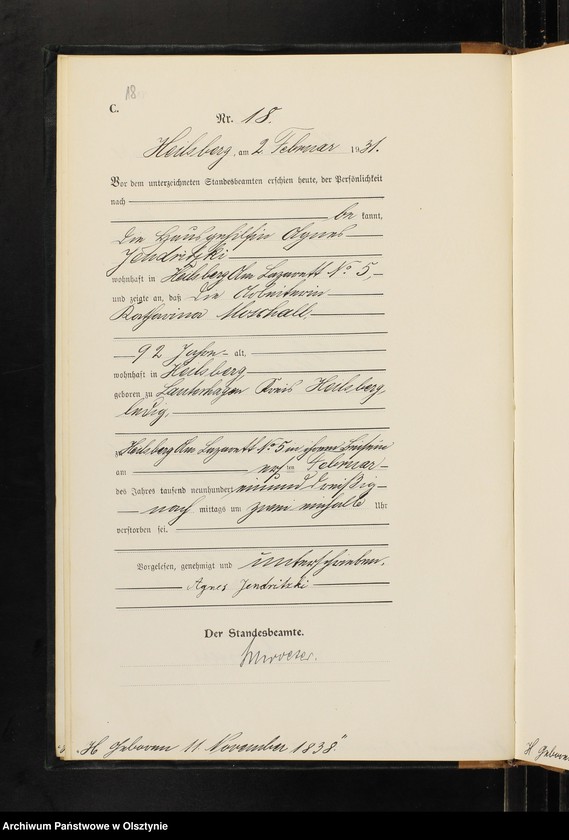 18
C.
Nr. 18.
Heilsberg, am 2. Februar 1931.
Vor dem unterzeichneten Standesbeamten erschien heute, der Persönlichkeit
nach
be kannt,
die Hausgehilfin Agnes
Jendritzki
wohnhaft in Heilsberg Am Lazarett No 5,
und zeigte an, daß die Arbeiterin
Katharina Marschall,
92 Jahre alt,
wohnhaft in Heilsberg
geboren zu Lauterhagen Kreis Heilsberg,
ledig,
zu Heilsberg Am Lazarett No 5 in ihrem Beisein
am ersten Februar
des Jahres tausend neunhundert einunddreißig
nach mittags um zwei einhalb Uhr
verstorben sei.
Vorgelesen, genehmigt und unterschrieben.
Agnes Jendritzki
Der Standesbeamte.
"H Geboren 11 November 1838"
H Geboren
Archiwum Państwowe w Olsztynie